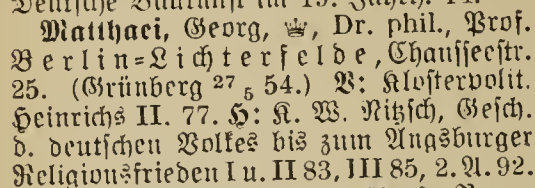 Deutsche Baukunst im 19. Jahrh.
Matthaei, Georg, ♕, Dr. phil., Prof.
Berlin=Lichterfelde, Chausseestr.
25. (Grünberg 27/5 54.) V: Klosterpolit.
Heinrichs II. 77. H: K. W. Nitzsch, Gesch.
d. deutschen Volkes bis zum Augsburger
Religionsfrieden I u. II 83, III 85, 2. A. 92.